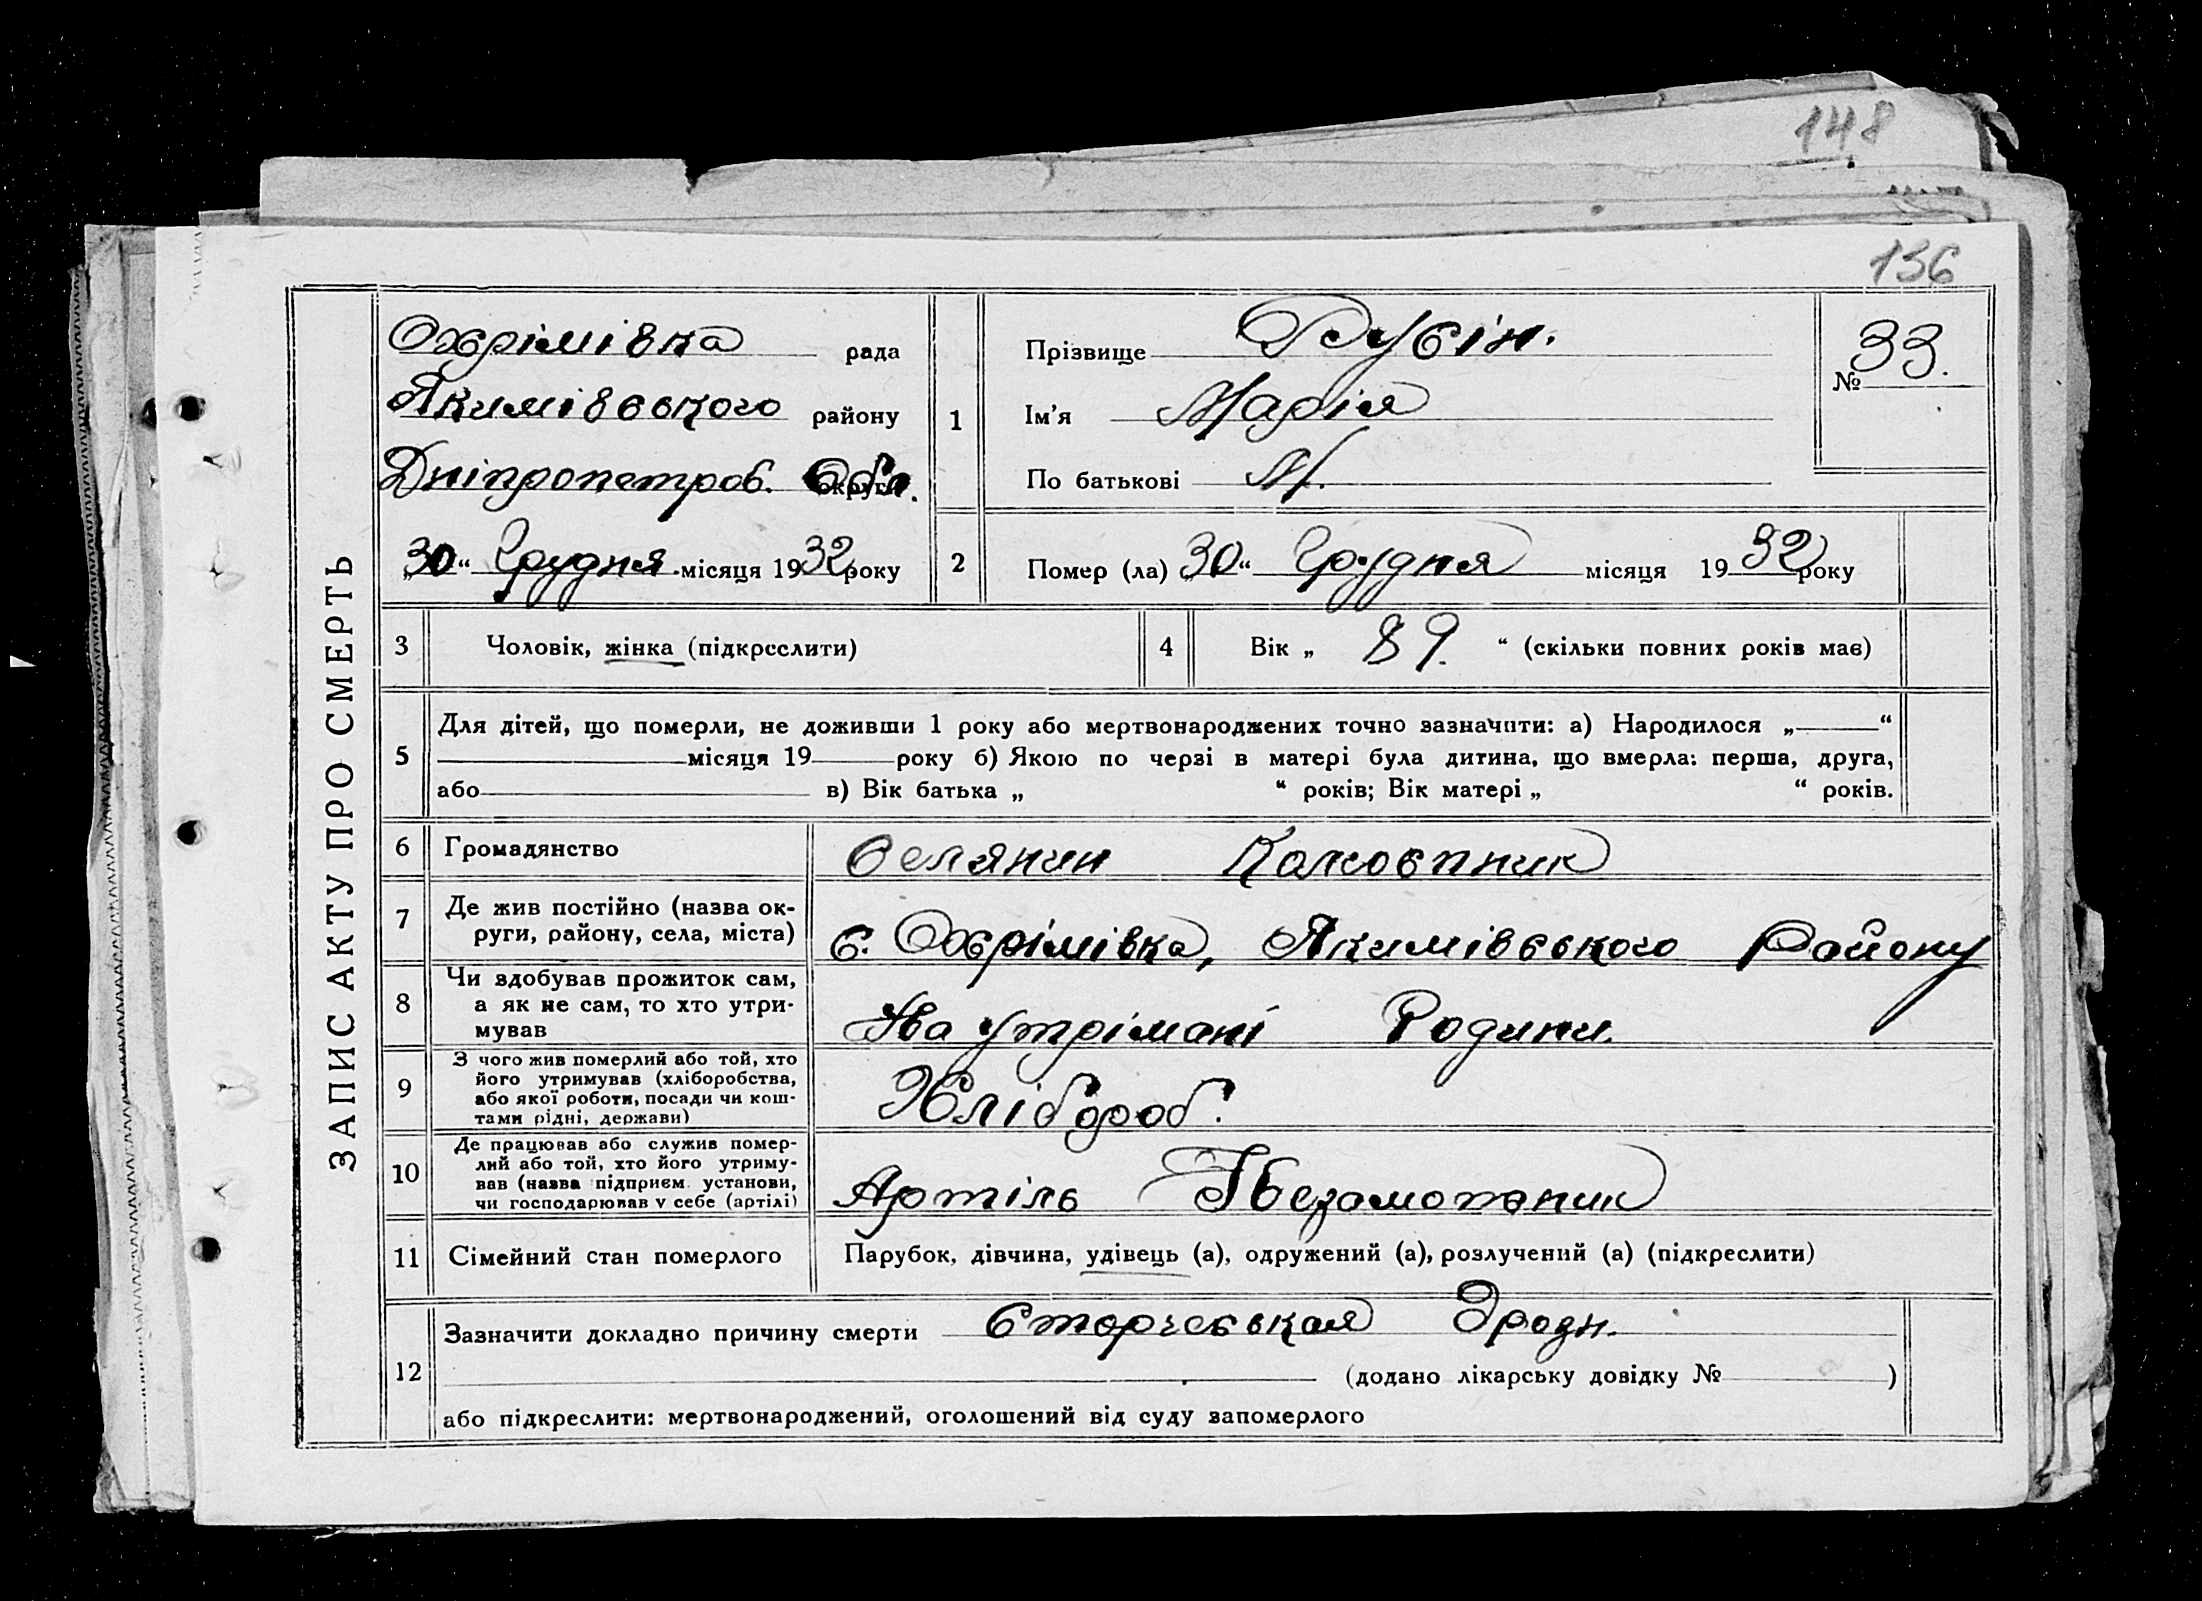 148
136
ЗАПИС АКТУ ПРО СМЕРТЬ
Охрімівка рада
Якимівського району
Дніпропетров. Обл. округи
„30“ Грудня місяця 1932 року
1
Прізвище Рубін.
Ім'я Марія
По батькові М.
№ 33.
2 Помер (ла) „30“ Грудня місяця 1932 року
3 Чоловік, жінка (підкреслити)
4 Вік „ 89. “ (скільки повних років має)
5 Для дітей, що померли, не доживши 1 року або мертвонароджених точно зазначити: а) Народилося „ “
місяця 19 року б) Якою по черзі в матері була дитина, що вмерла: перша, друга,
або в) Вік батька „ “ років; Вік матері „ “ років.
6 Громадянство Селянин Колгоспник
7 Де жив постійно (назва ок-
руги, району, села, міста) с. Охрімівка, Якимівського Району
8 Чи здобував прожиток сам,
а як не сам, то хто утри-
мував На утрімані Родини.
9 З чого жив померлий або той, хто
його утримував (хліборобства,
або якої роботи, посади чи кош-
тами рідні, держави) Хлібороб.
10 Де працював або служив помер-
лий або той, хто його утриму-
вав (назва підприєм. установи,
чи господарював у себе (артілі) Артіль Незаможник
11 Сімейний стан померлого Парубок, дівчина, удівець (а), одружений (а), розлучений (а) (підкреслити)
12 Зазначити докладно причину смерти
(додано лікарську довідку № )
або підкреслити: мертвонароджений, оголошений від суду запомерлого